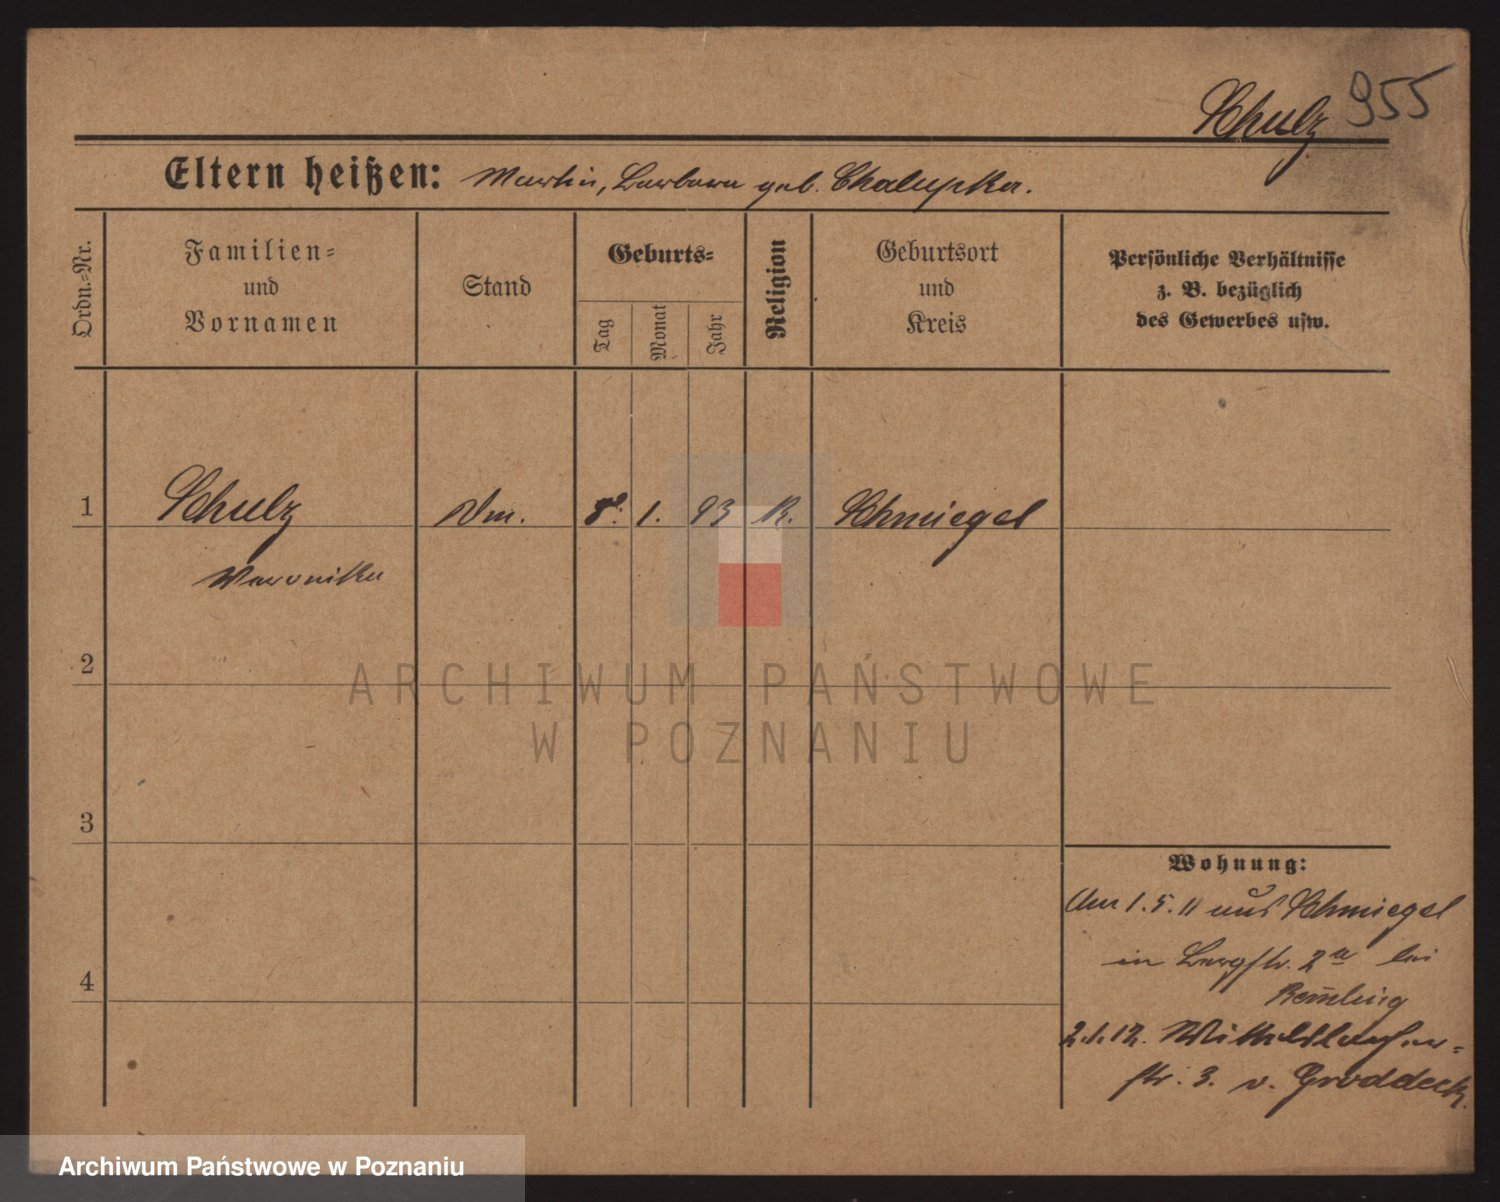 Schulz 955
Eltern heißen: Martin, Barbara geb. Chalupka.
Ordn.-Nr.
Familien- und Vornamen
Stand
Geburts-
Tag
Monat
Jahr
Religion
Geburtsort und Kreis
Persönliche Verhältnisse
z. B. bezüglich
des Gewerbes usw.
1 Schulz Dm. 8. 1. 93 K. Schmiegel
Veronika
2
3
4
Wohnung:
Am 1.5.11 aus Schmiegel
in Bergstr. 2a bei
2.1.12.
str. 3. v. Groddeck.
ARCHIWUM PAŃSTWOWE
W POZNANIU
Archiwum Państwowe w Poznaniu